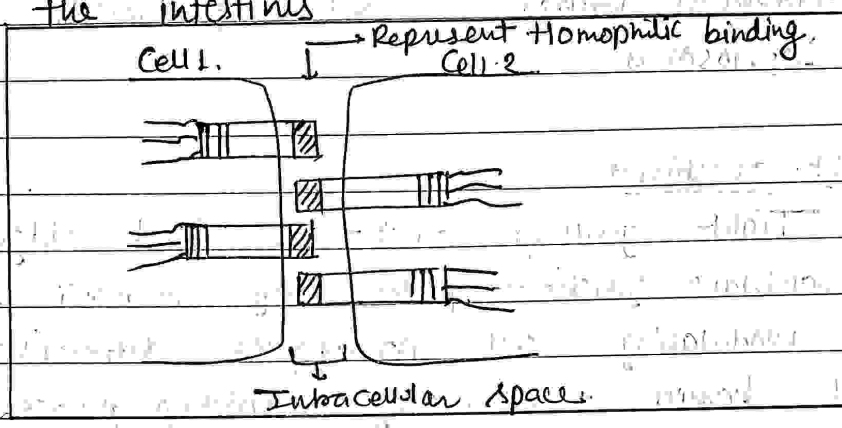 the intestines
Represent Homophilic binding.
Cell 1.
Cell 2
Intracellular space.